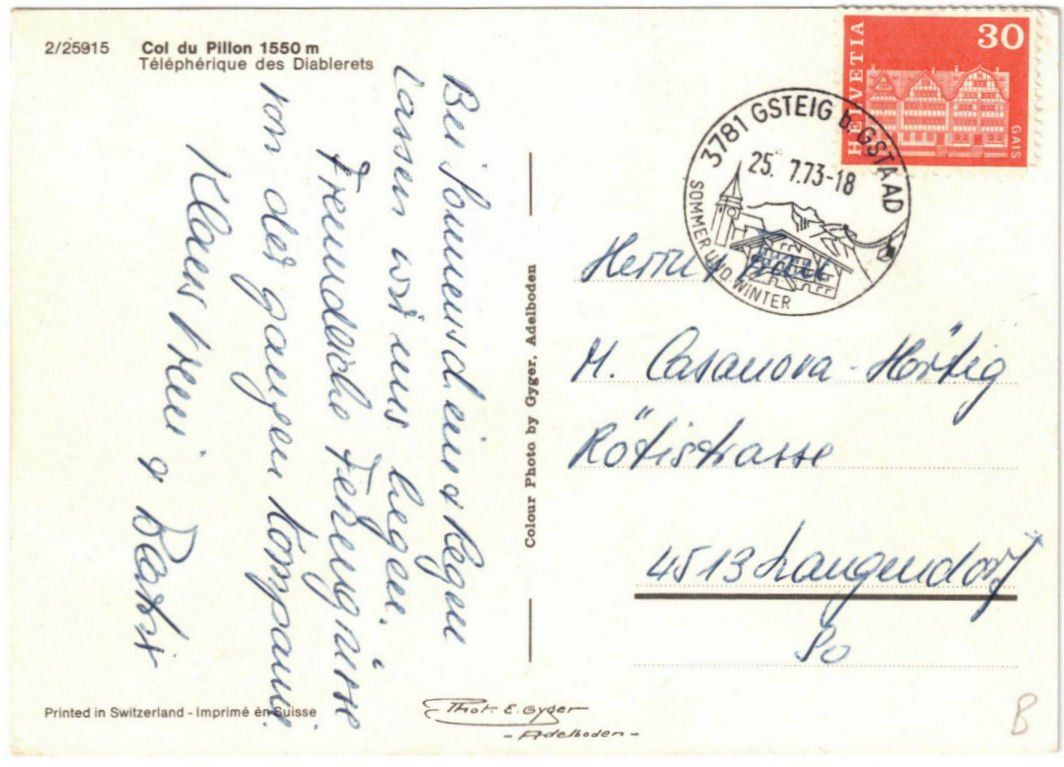 2/25915 Col du Pillon 1550 m
Téléphérique des Diablerets
Bei Sonnenschein & Regen
lassen wir uns legen.
Freundliche Feriengrüsse
von der ganzen Kompanie
Klaus
HELVETIA 30
GAIS
3781 GSTEIG b. GSTAAD
25. 7.73-18
SOMMER UND WINTER
Herrn &
M. Casanova-Hörtig
Rötistrasse
4513 Langendorf
So
Colour Photo by Gyger, Adelboden
Printed in Switzerland - Imprimé en Suisse
Phot. E. Gyger
- Adelboden -
B